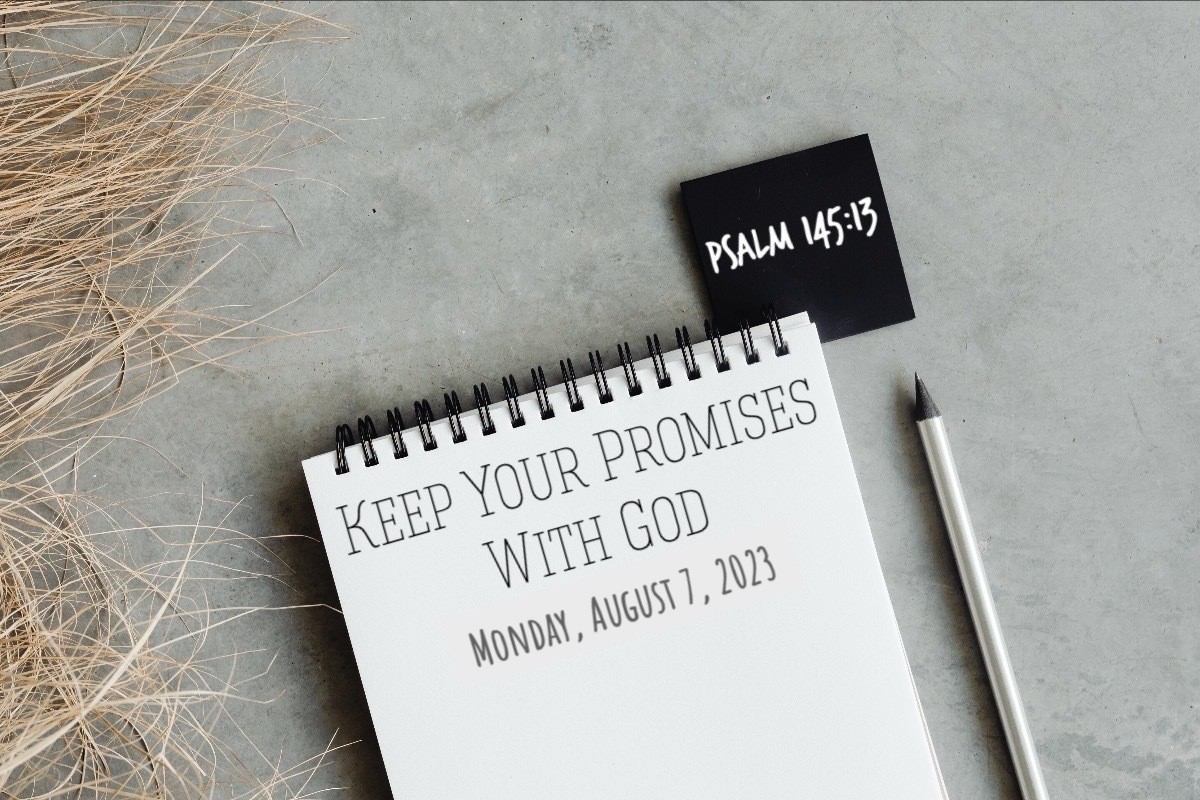 PSALM 145:13
KEEP YOUR PROMISES
WITH GOD
MONDAY, AUGUST 7, 2023